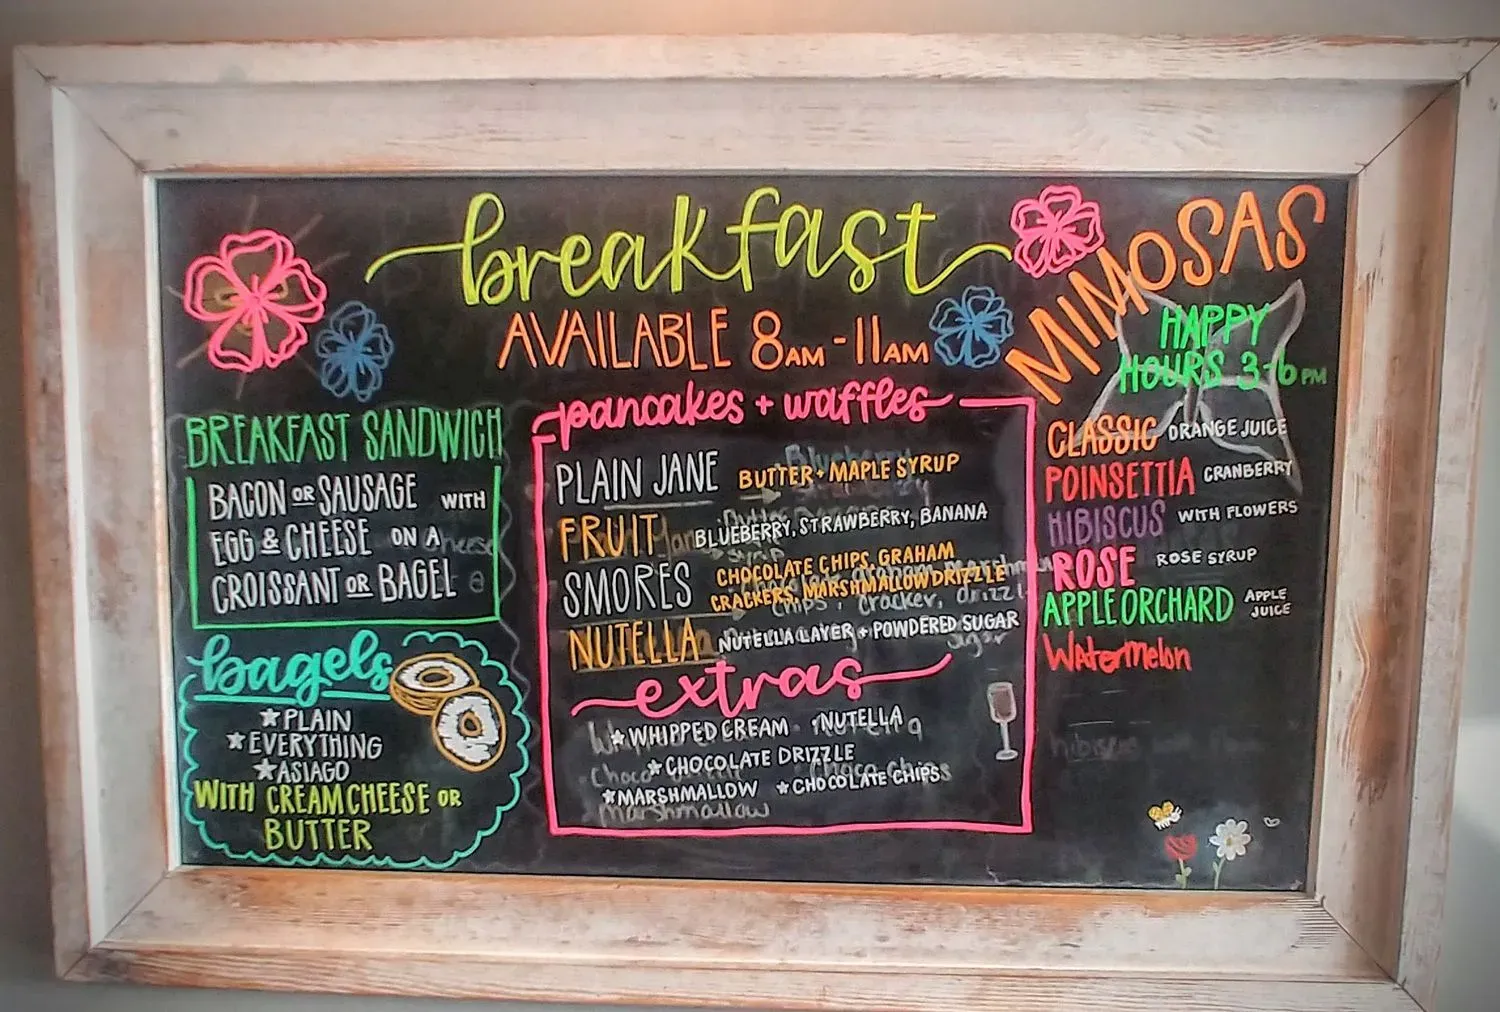 breakfast
AVAILABLE 8AM-11AM
BREAKFAST SANDWICH
BACON OR SAUSAGE WITH
EGG & CHEESE ON A
CROISSANT OR BAGEL
bagels
★ PLAIN
★ EVERYTHING
★ ASIAGO
WITH CREAM CHEESE OR
BUTTER
pancakes + waffles
PLAIN JANE BUTTER + MAPLE SYRUP
FRUIT BLUEBERRY, STRAWBERRY, BANANA
SMORES CHOCOLATE CHIPS, GRAHAM
CRACKERS, MARSHMALLOW DRIZZLE
NUTELLA NUTELLA LAYER + POWDERED SUGAR
extras
★ WHIPPED CREAM · NUTELLA
★ CHOCOLATE DRIZZLE
★ MARSHMALLOW ★ CHOCOLATE CHIPS
MIMOSAS
HAPPY
HOURS 3-6PM
CLASSIC ORANGE JUICE
POINSETTIA CRANBERRY
HIBISCUS WITH FLOWERS
ROSE ROSE SYRUP
APPLE ORCHARD APPLE
JUICE
Watermelon